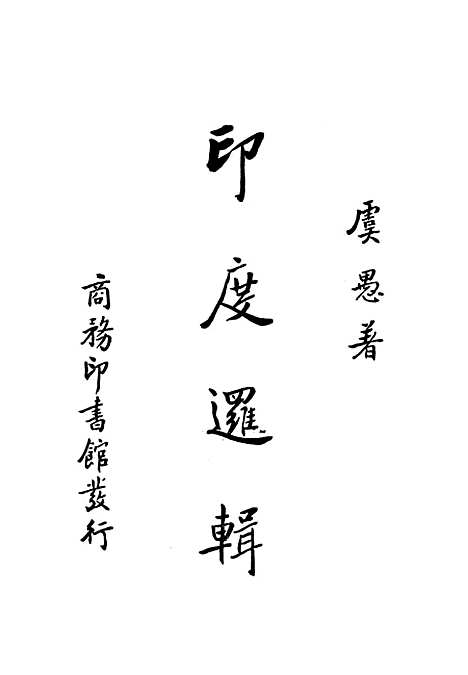 虞愚著
印度邏輯
商務印書館發行